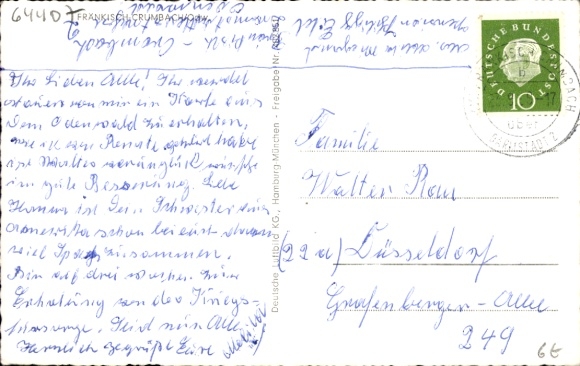 644D7
FRÄNKISCH-CRUMBACH/Odw.
Ihr Lieben Alle! Ihr werdet
staunen von mir ein Karte aus
dem Odenwald zu erhalten,
wie ich von Renate gehört habe
ist Walter verunglückt wünsche
im gute Besserung. Liebe
Hanna ist Dein Schwester aus
Amerika schon bei euch dann
viel Spaß zusammen.
Bin auf drei Wochen zur
Erholung von der Kriegs-
fürsorge. Seid nun Alle
Herzlich gegrüßt Eure
Mathilde
Deutsche Luftbild KG., Hamburg München - Freigabe Nr.
DEUTSCHE BUNDESPOST
10
Familie
Walter Rau
(22a) Düsseldorf
Grafenberger-Allee
249
6E